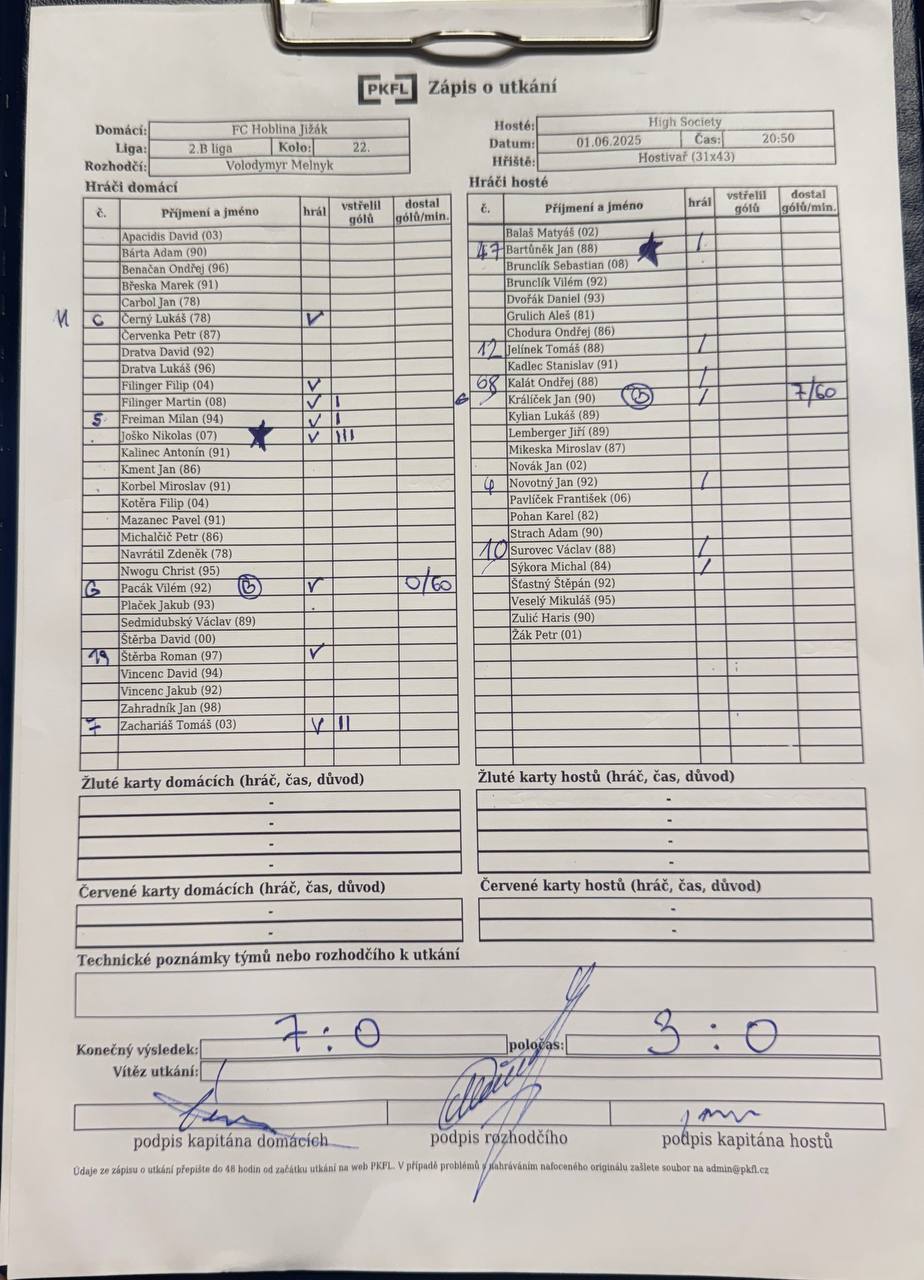 PKFL Zápis o utkání
Domácí: FC Hoblina Jižák
Liga: 2.B liga Kolo: 22.
Rozhodčí: Volodymyr Melnyk
Hosté: High Society
Datum: 01.06.2025 Čas: 20:50
Hřiště: Hostivař (31x43)
Hráči domácí
č. Příjmení a jméno hrál vstřelil gólů dostal gólů/min.
Apacidis David (03)
Bárta Adam (90)
Benačan Ondřej (96)
Břeska Marek (91)
Carbol Jan (78)
C Černý Lukáš (78) ✓
Červenka Petr (87)
Dratva David (92)
Dratva Lukáš (96)
Filinger Filip (04) ✓
Filinger Martin (08) ✓ I
5 Freiman Milan (94) ✓ I
Joško Nikolas (07) ★ ✓ III
Kalinec Antonín (91)
Kment Jan (86)
Korbel Miroslav (91)
Kotěra Filip (04)
Mazanec Pavel (91)
Michalčič Petr (86)
Navrátil Zdeněk (78)
Nwogu Christ (95)
G Pacák Vilém (92) B ✓ 0/60
Plaček Jakub (93)
Sedmidubský Václav (89)
Štěrba David (00)
19 Štěrba Roman (97) ✓
Vincenc David (94)
Vincenc Jakub (92)
Zahradník Jan (98)
7 Zachariáš Tomáš (03) ✓ II
Hráči hosté
č. Příjmení a jméno hrál vstřelil gólů dostal gólů/min.
Balaš Matyáš (02)
47 Bartůněk Jan (88) ★ /
Brunclík Sebastian (08)
Brunclík Vilém (92)
Dvořák Daniel (93)
Grulich Aleš (81)
Chodura Ondřej (86)
12 Jelínek Tomáš (88) /
Kadlec Stanislav (91)
68 Kalát Ondřej (88) /
Králíček Jan (90) B / 7/60
Kylian Lukáš (89)
Lemberger Jiří (89)
Mikeska Miroslav (87)
Novák Jan (02)
Novotný Jan (92) /
Pavlíček František (06)
Pohan Karel (82)
Strach Adam (90)
10 Surovec Václav (88) /
Sýkora Michal (84) /
Šťastný Štěpán (92)
Veselý Mikuláš (95)
Zulić Haris (90)
Žák Petr (01)
Žluté karty domácích (hráč, čas, důvod)
-
-
-
-
Žluté karty hostů (hráč, čas, důvod)
-
-
-
-
Červené karty domácích (hráč, čas, důvod)
-
-
Červené karty hostů (hráč, čas, důvod)
-
-
Technické poznámky týmů nebo rozhodčího k utkání
Konečný výsledek: 7:0 poločas: 3:0
Vítěz utkání:
podpis kapitána domácích podpis rozhodčího podpis kapitána hostů
Údaje ze zápisu o utkání přepište do 48 hodin od začátku utkání na web PKFL. V případě problémů s nahráváním nafoceného originálu zašlete soubor na admin@pkfl.cz